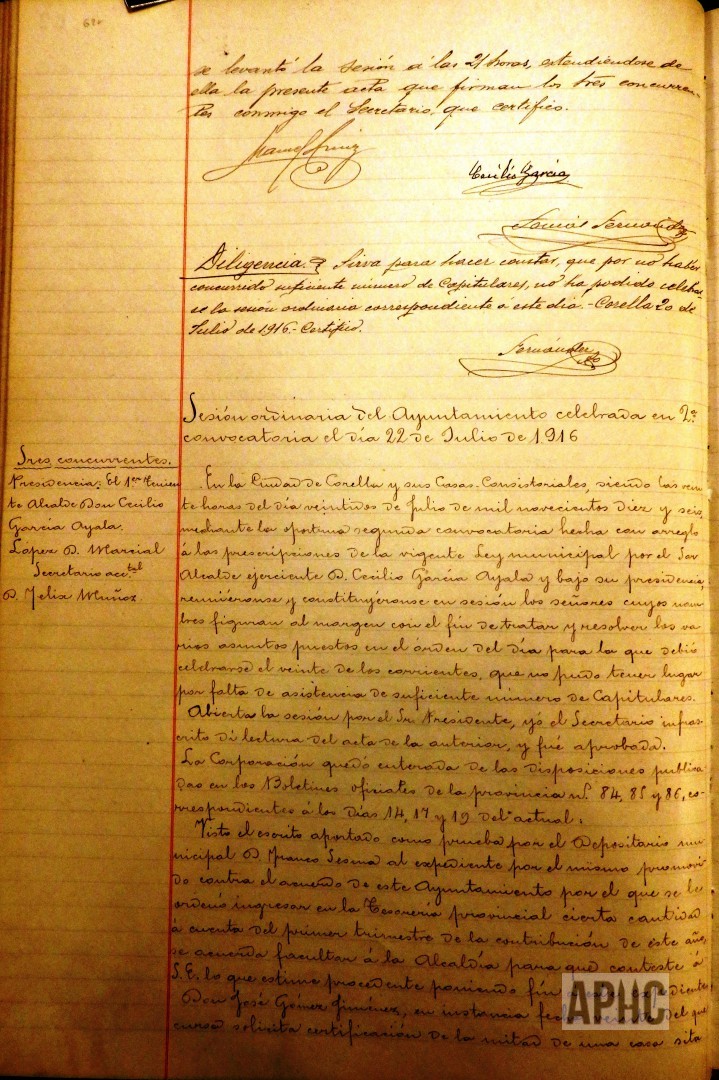 se levantó la sesión á las 21 horas, estendiéndose de
ella la presente acta que firman los tres concurren-
tes conmigo el Secretario, que certifico.
Cecilio García
Tomás Fernández
Diligencia. Sirva para hacer constar, que por no haber
concurrido suficiente número de Capitulares, no ha podido celebrar
se la sesión ordinaria correspondiente á este día.- Corella 20 de
Julio de 1916.- Certifico.
Fernández
Sesión ordinaria del Ayuntamiento celebrada en 2ª
convocatoria el día 22 de Julio de 1916
Sres. concurrentes.
Presidencia. El 1er Tenien
te Alcalde Don Cecilio
García Ayala.
López D. Marcial
Secretario acctal
D. Felix Muñoz.
En la Ciudad de Corella y sus Casas-Consistoriales, siendo las vein
te horas del día veintidos de Julio de mil novecientos diez y seis,
mediante la oportuna segunda convocatoria hecha con arreglo
á las prescripciones de la vigente Ley municipal por el Sor
Alcalde ejerciente D. Cecilio García Ayala y bajo su presidencia,
reuniéronse y constituyéronse en sesión los señores cuyos nom
bres figuran al margen con el fin de tratar y resolver los va
rios asuntos puestos en el órden del día para la que debió
celebrarse el veinte de los corrientes, que no pudo tener lugar
por falta de asistencia de suficiente número de Capitulares.
Abierta la sesión por el Sr. Presidente, yó el Secretario infras
crito dí lectura del acta de la anterior, y fué aprobada.
La Corporación quedó enterada de las disposiciones publica
das en los Boletines oficiales de la provincia nº 84, 85 y 86, co-
rrespondientes á los días 14, 17 y 19 del actual.
Visto el escrito aportado como prueba por el Depositario mu
nicipal D. Franco Sesma al expediente por el mismo promovi
do contra el acuerdo de este Ayuntamiento por el que se le
ordenó ingresar en la Tesorería provincial cierta cantidad
á cuenta del primer trimestre de la contribución de este año,
se acuerda facultar á la Alcaldía para que conteste á
S.E. lo que estime procedente poniendo fín expediente
Don José Gómez Jiménez, en instancia del que
cursa solicita certificación de la mitad de una casa sita
APHC